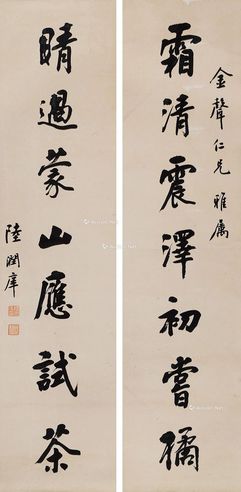 金聲仁兄雅属
霜清震澤初嘗橘
晴過蒙山應試茶
陸潤庠